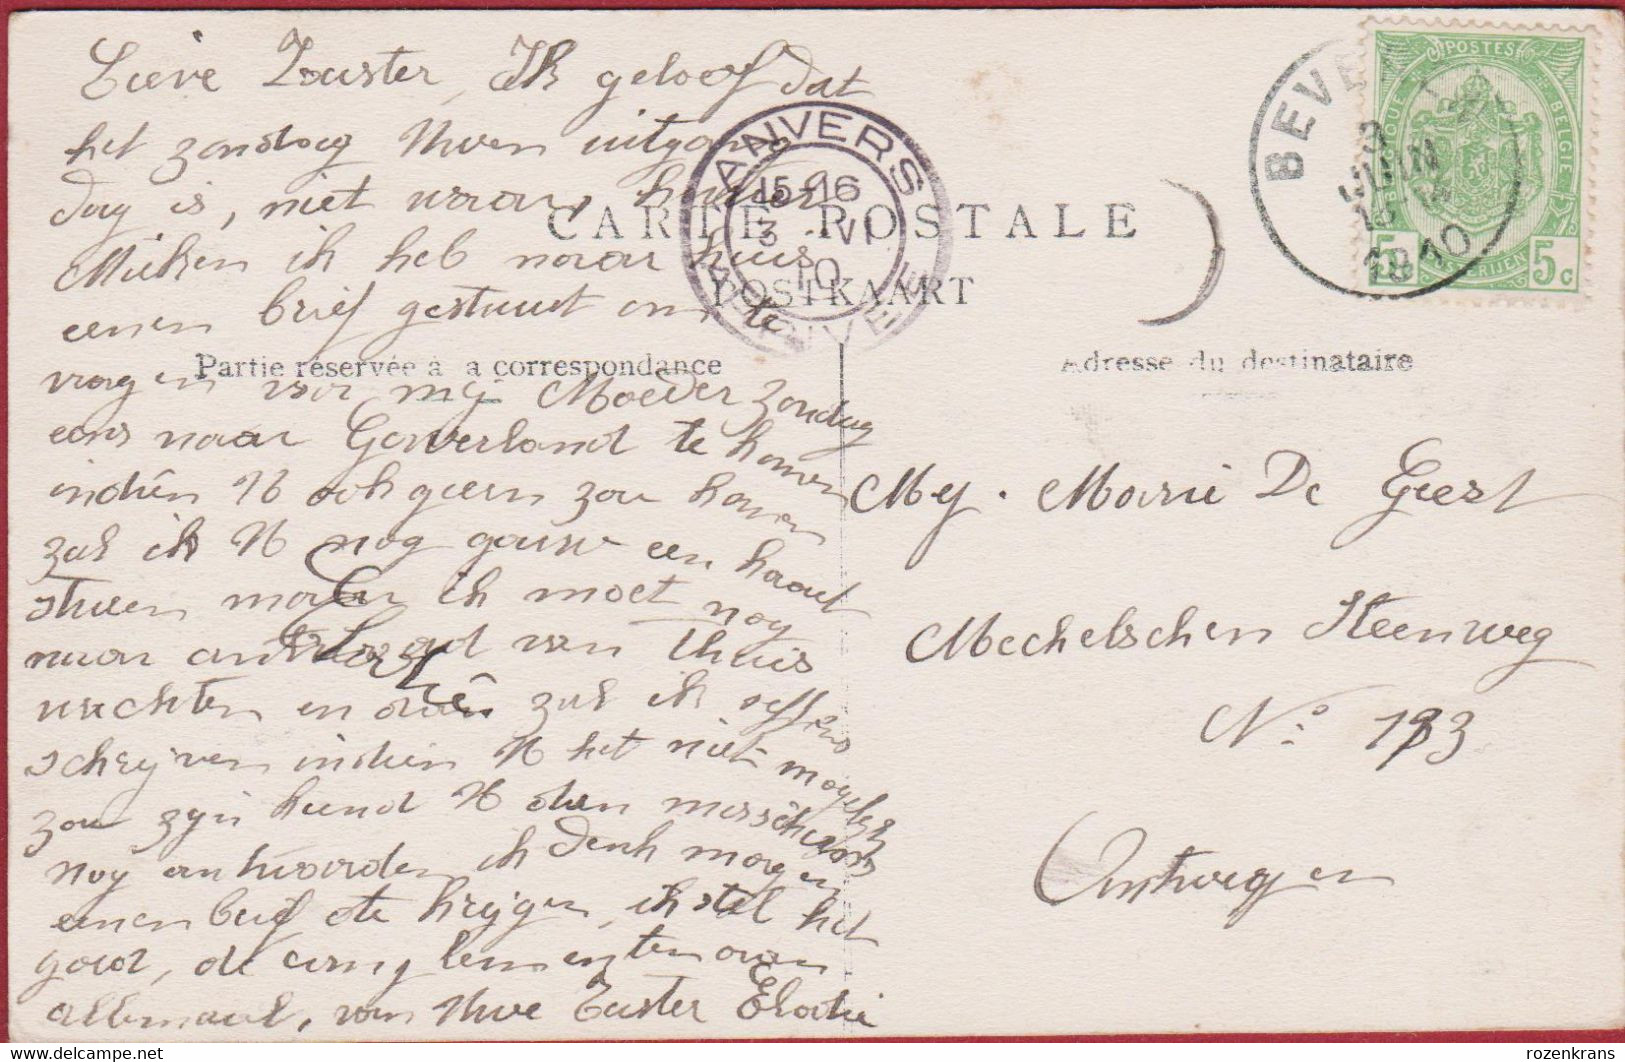 Lieve Zuster, Ik geloof dat
het zondag Uwen uitgang
dag is, niet waar,
Mieken ik heb naar huis
eenen brief gestuurd om te
vragen voor mij Moeder zondag
eens naar Gowerland te komen
indien U ook geern zou komen
zal ik U nog gauw een kaart
sturen maar ik moet nog
naar antwoord van thuis
wachten indien zal ik seffens
schrijven indien U het niet mogelyk
zou zijn kund U dan misschiens
nog antwoorden ik denk morgen
eenen brief te krijgen, ik stel het
goed, de complementen van
allemaal, van Uwe Zuster Elodie
CARTE POSTALE
POSTKAART
Partie réservée à la correspondance
Adresse du destinataire
Mej. Marie De Geest
Mechelschen Steenweg
No: 193
Antwerpen
ANVERS
15-16
3 VI
10
ANTWERPEN
BEVE
3
JUIN
1910
POSTES
BELGIQUE
BELGIE
5c
5c
rozenkrans
delcampe.net